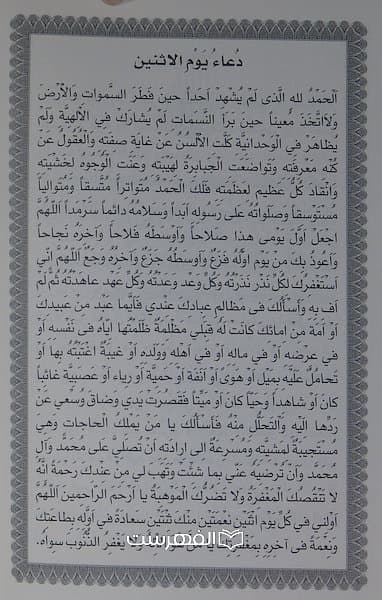 دُعاءُ يَوْمِ الاثنين
اَلْحَمْدُ لله الَّذى لَمْ يُشْهِدْ اَحَداً حينَ فَطَرَ السَّموات وَالْأَرْضَ
وَلَااتَّخَذَ مُعيناً حينَ بَرَأَ النَّسَمات لَمْ يُشارَكْ فِي الْالهِيَّة وَلَمْ
يُظاهَرْ في الْوَحْدانِيَّة كَلَّت الْأَلْسُنُ عَنْ غايَة صفَته وَالْعُقُولُ عَنْ
كُنْه مَعْرِفَته وَتَواضَعَت الْجَبابِرَةُ لهَيْبَته وَعَنَت الْوُجُوهُ لخَشْيَته
وَانْقادَ كُلُّ عَظيم لعَظَمَته فَلَكَ الْحَمْدُ مُتَواتراً مُتَّسقاً وَمُتَوالياً
مُسْتَوْسقاً وَصَلَواتُهُ عَلى رَسُوله اَبَداً وَسَلامُهُ دائماً سَرْمَداً اَللّهُمَّ
اجْعَلْ اَوَّلَ يَوْمى هذا صَلاحاً وَاَوْسَطَهُ فَلاحاً وَآخرَهُ نَجاحاً
وَاَعُوذُ بكَ منْ يَوْم اَوَّلُهُ فَزَعٌ وَاَوْسَطُهُ جَزَعٌ وَآخرُهُ وَجَعٌ اَللّهُمَّ اِنّى
اَسْتَغْفرُكَ لكُلّ نَذْر نَذَرْتُهُ وَكُلّ وَعْد وَعَدْتُهُ وَكُلّ عَهْد عاهَدْتُهُ ثُمَّ لَمْ
اَف بِه وَاَسْأَلُكَ في مَظالم عبادكَ عنْدي فَاَيُّما عَبْد منْ عَبيدكَ
اَوْ اَمَة منْ امائكَ كانَتْ لَهُ قبَلي مَظْلمَةٌ ظَلَمْتُها ايّاهُ في نَفْسه اَوْ
في عرْضه اَوْ في ماله اَوْ في اَهْله وَوَلَده اَوْ غيبَةٌ اغْتَبْتُهُ بِها اَوْ
تَحامُلٌ عَلَيْه بِمَيْل اَوْ هَوىً اَوْ اَنَفَة اَوْ حَميَّة اَوْ رياء اَوْ عَصَبيَّة غائباً
كانَ اَوْ شاهداً وَحَيّاً كانَ اَوْ مَيّتاً فَقَصُرَتْ يَدي وَضاقَ وُسْعي عَنْ
رَدّها الَيْه وَالتَّحَلُّل منْهُ فَأَسْأَلُكَ يا مَنْ يَمْلكُ الْحاجات وَهيَ
مُسْتَجيبَةٌ لمَشيَّته وَمُسْرعَةٌ الى ارادَته اَنْ تُصَلّيَ عَلى مُحَمَّد وَآل
مُحَمَّد وَاَنْ تُرْضيَهُ عَنّي بما شئْتَ وَتَهَبَ لي منْ عنْدكَ رَحْمَةً انَّهُ
لا تَنْقُصُكَ الْمَغْفرَةُ وَلا تَضُرُّكَ الْمَوْهبَةُ يا اَرْحَمَ الرّاحمينَ اَللّهُمَّ
اَوْلني في كُلّ يَوْم اثْنَيْن نعْمَتَيْن منْكَ ثنْتَيْن سَعادَةً في اَوَّله بطاعَتكَ
وَنعْمَةً في آخِرِهِ بِمَغْفِرَتِكَ يا مَنْ هُوَ الْالهُ وَلا يَغْفِرُ الذُّنُوبَ سِواهُ.
الفهرست